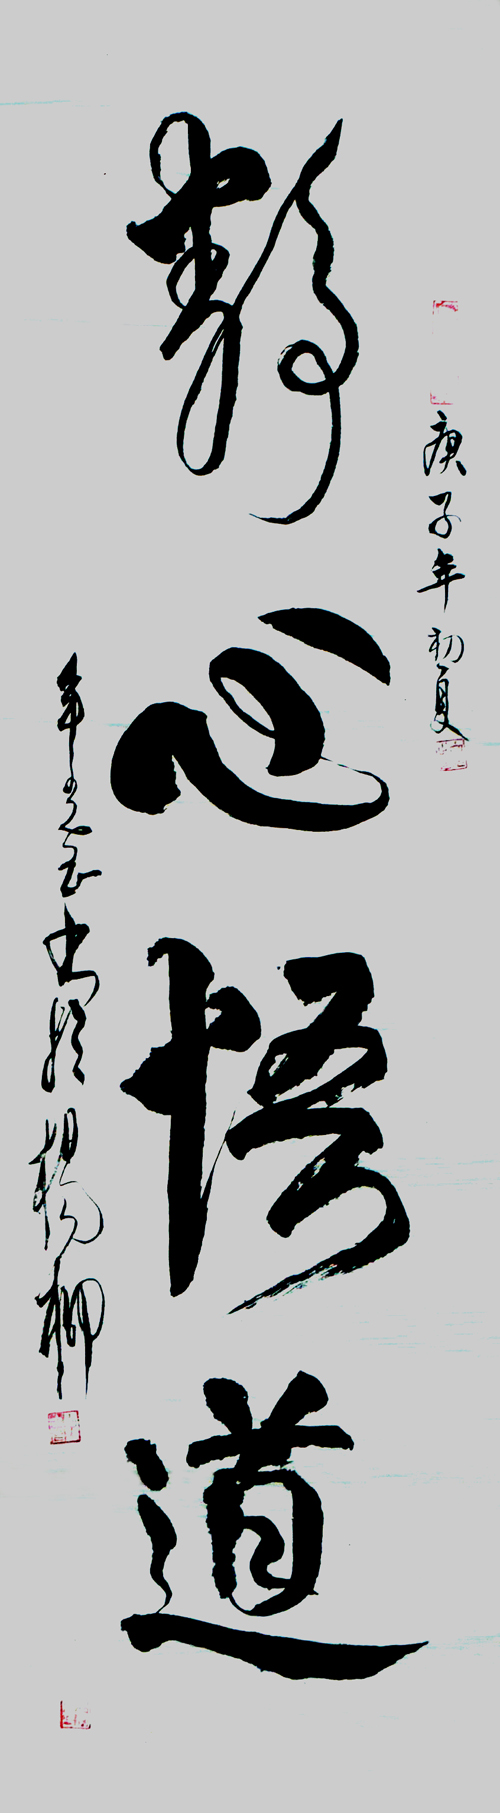 庚子年初夏
静心悟道
书於杨柳